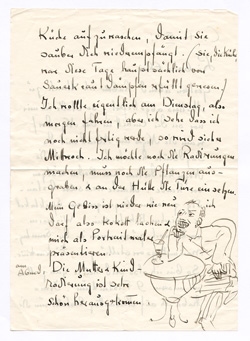 Küche aufzuwaschen, damit sie
sauber Dich wiederempfängt. (sie, die Küche,
war diese Tage hauptsächlich von
und Dampfen erfüllt gewesen)
Ich wollte eigentlich am Dienstag, also
morgen fahren, aber ich sehe dass ich
noch nicht fertig werde, so wird sicher
Mittwoch. Ich möchte noch die Radierungen
machen, muss noch die Pflanzen aus-
graben & an der Hütte die Türe einsetzen.
Mein Gebiss ist wieder wie neu, ich
darf also kokett lachen &
mich als Portraitmaler
präsentieren.
am Abend,
Die Mutter & Kind
radierung ist sehr
schön herausgekommen.